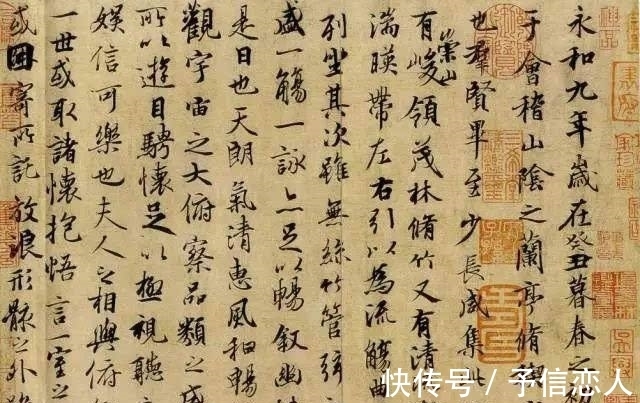 永和九年歲在癸丑暮春之
于會稽山陰之蘭亭脩禊
也羣賢畢至少長咸集此
有崇山峻領茂林脩竹又有清
湍暎帶左右引以為流觴曲
列坐其次雖無絲竹管弦
盛一觴一詠亦足以暢敘幽
是日也天朗氣清惠風和暢
觀宇宙之大俯察品類之盛
所以遊目騁懷足以極視聽之
娛信可樂也夫人之相與俯
一世或取諸懷抱悟言一室之
或因寄所託放浪形骸之外雖
快传号 / 予信恋人